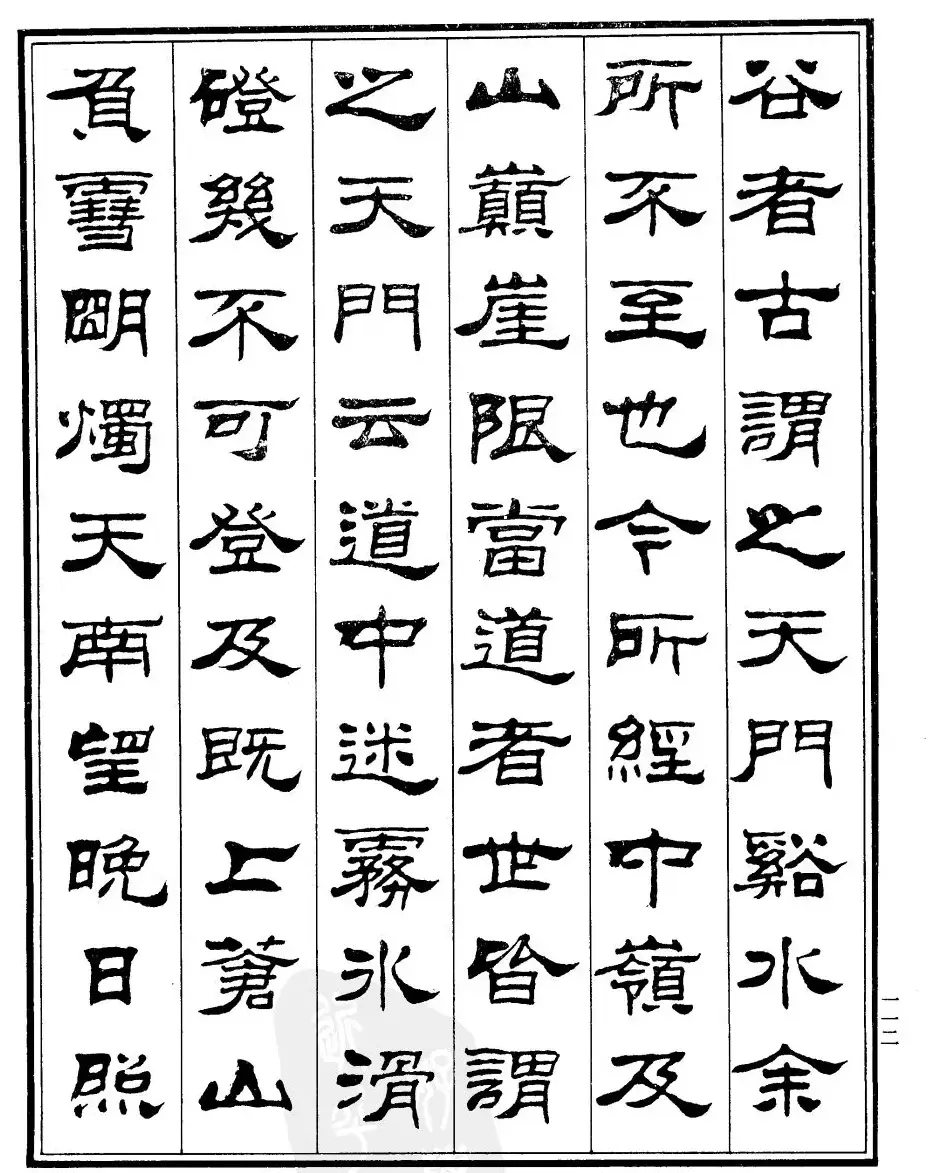 谷者古謂之天門谿水余
所不至也今所經中嶺及
山巔崖限當道者世皆謂
之天門云道中迷霧冰滑
磴幾不可登及既上蒼山
負雪朙燭天南望晚日照